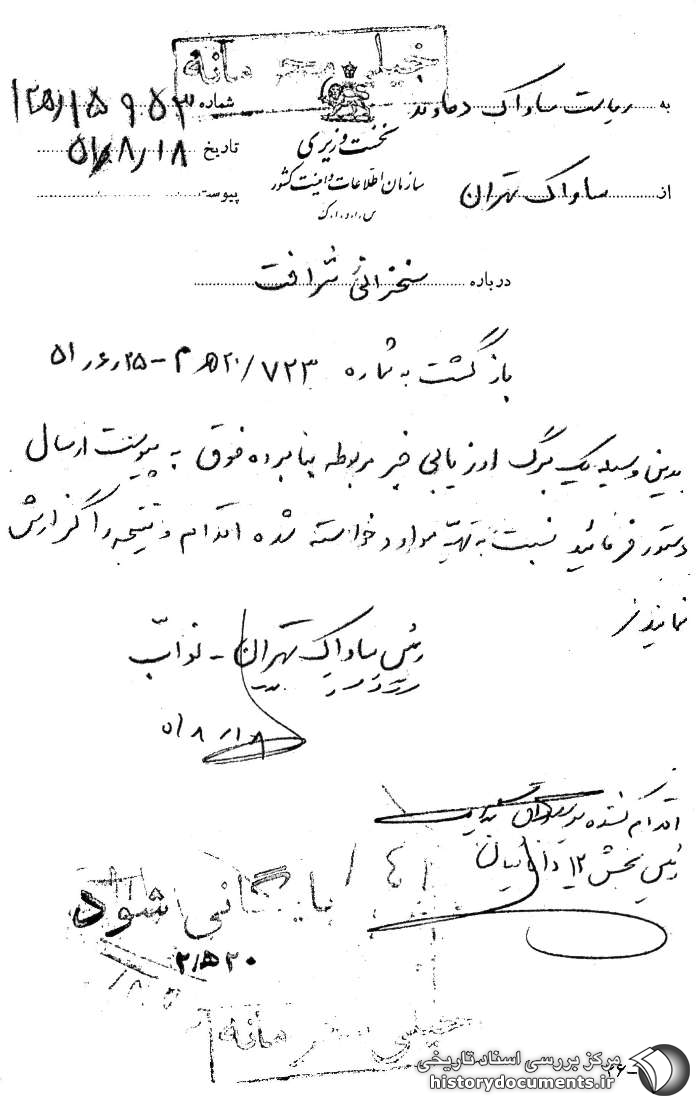 خیلی محرمانه
به ریاست ساواک دماوند
شماره ۱۵۹۵۳/
نخست وزیری
تاریخ ۵۱/۸/۱۸
از ساواک تهران
سازمان اطلاعات و امنیت کشور
پیوست
س.ا.و.ا.ک
درباره سخنرانی شرافت
بازگشت به شماره ۷۲۳/۲۰ﻫ م – ۵۱/۶/۲۵
بدینوسیله یک برگ ارزیابی خبر مربوطه بنامبرده فوق به پیوست ارسال
دستور فرمائید نسبت به تهیه موارد خواسته شده اقدام و نتیجه را گزارش
نمایند
رئیس ساواک تهران – نواب
اقدام کننده
رئیس بخش ۱۲ دانائیان
بایگانی شود
۲۰ﻫ۲
خیلی محرمانه
مرکز بررسی اسناد تاریخی
historydocuments.ir